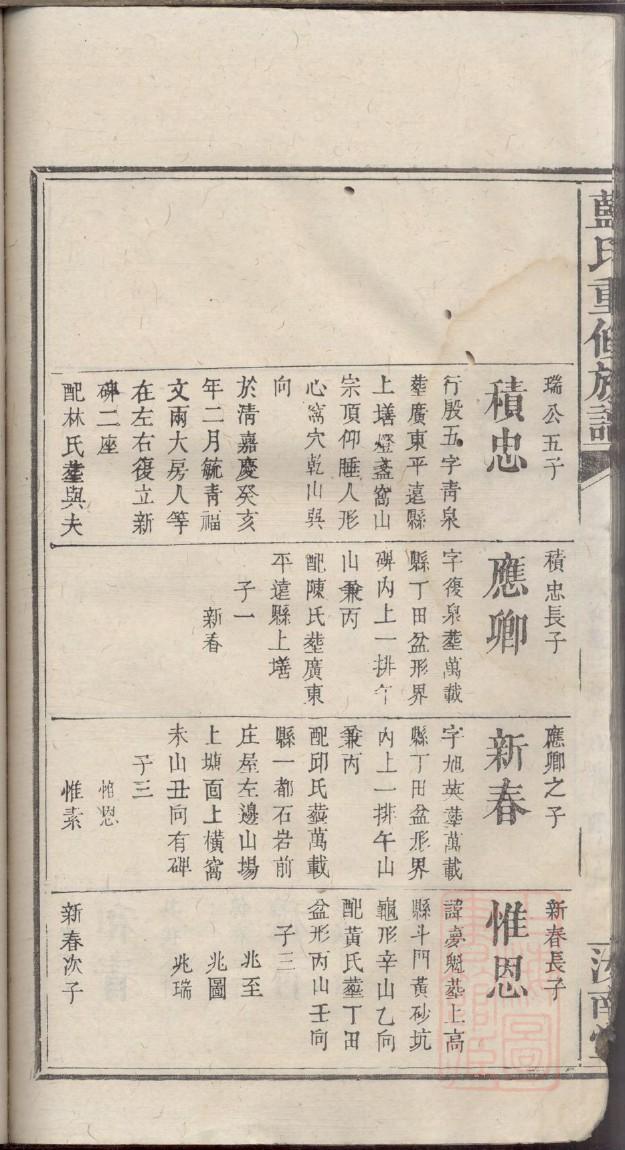 藍氏重修族譜
汝南堂
瑞公五子
積忠
行殷五字青泉
葬廣東平遠縣
上墡燈盞窩山
宗頂仰睡人形
心窩穴乾山巽
向
於清嘉慶癸亥
年二月毓青福
文兩大房人等
在左右復立新
碑二座
配林氏葬與夫
積忠長子
應卿
字復泉葬萬載
縣丁田盆形界
碑內上一排午
山兼丙
配陳氏葬廣東
平遠縣上墡
子一
新春
應卿之子
新春
字旭英葬萬載
縣丁田盆形界
內上一排午山
兼丙
配邱氏葬萬載
縣一都石岩前
庄屋左邊山場
上塘面上橫窩
未山丑向有碑
子三
惟恩
惟素
新春長子
惟恩
諱夢魁葬上高
縣斗門黃砂坑
龜形辛山乙向
配黃氏葬丁田
盆形丙山壬向
子三
兆至
兆圖
兆瑞
新春次子